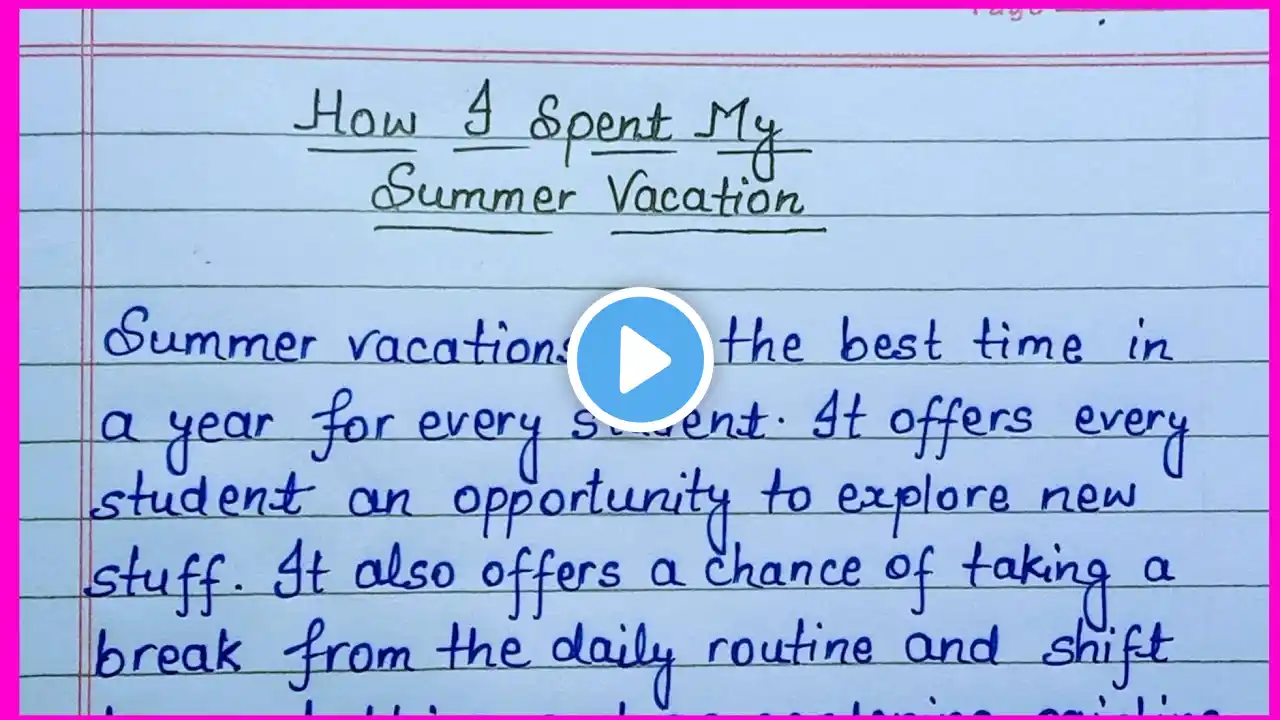 Page
How I Spent My
Summer Vacation
Summer vacations the best time in
a year for every student. It offers every
student an opportunity to explore new
stuff. It also offers a chance of taking a
break from the daily routine and shift